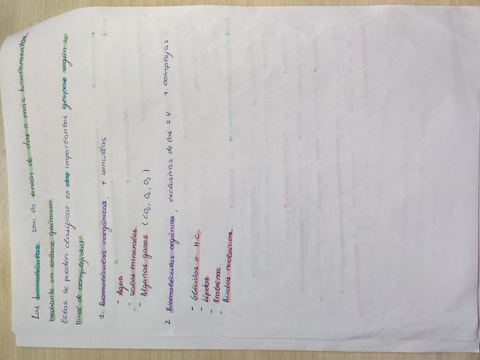 Las biomoléculas son la unión de dos o más bioelementos
mediante un enlace químico
Estas se pueden clasificar en dos importantes grupos según su
nivel de complejidad
1. Biomoléculas inorgánicas, + sencillas.
- Agua
- Sales minerales
- Algunos gases (CO2, O2,
2. Biomoléculas orgánicas, exclusivas de los s.v. + complejas
- Glúcidos o H.C.
- Lípidos
- Proteínas
- Ácidos nucleicos